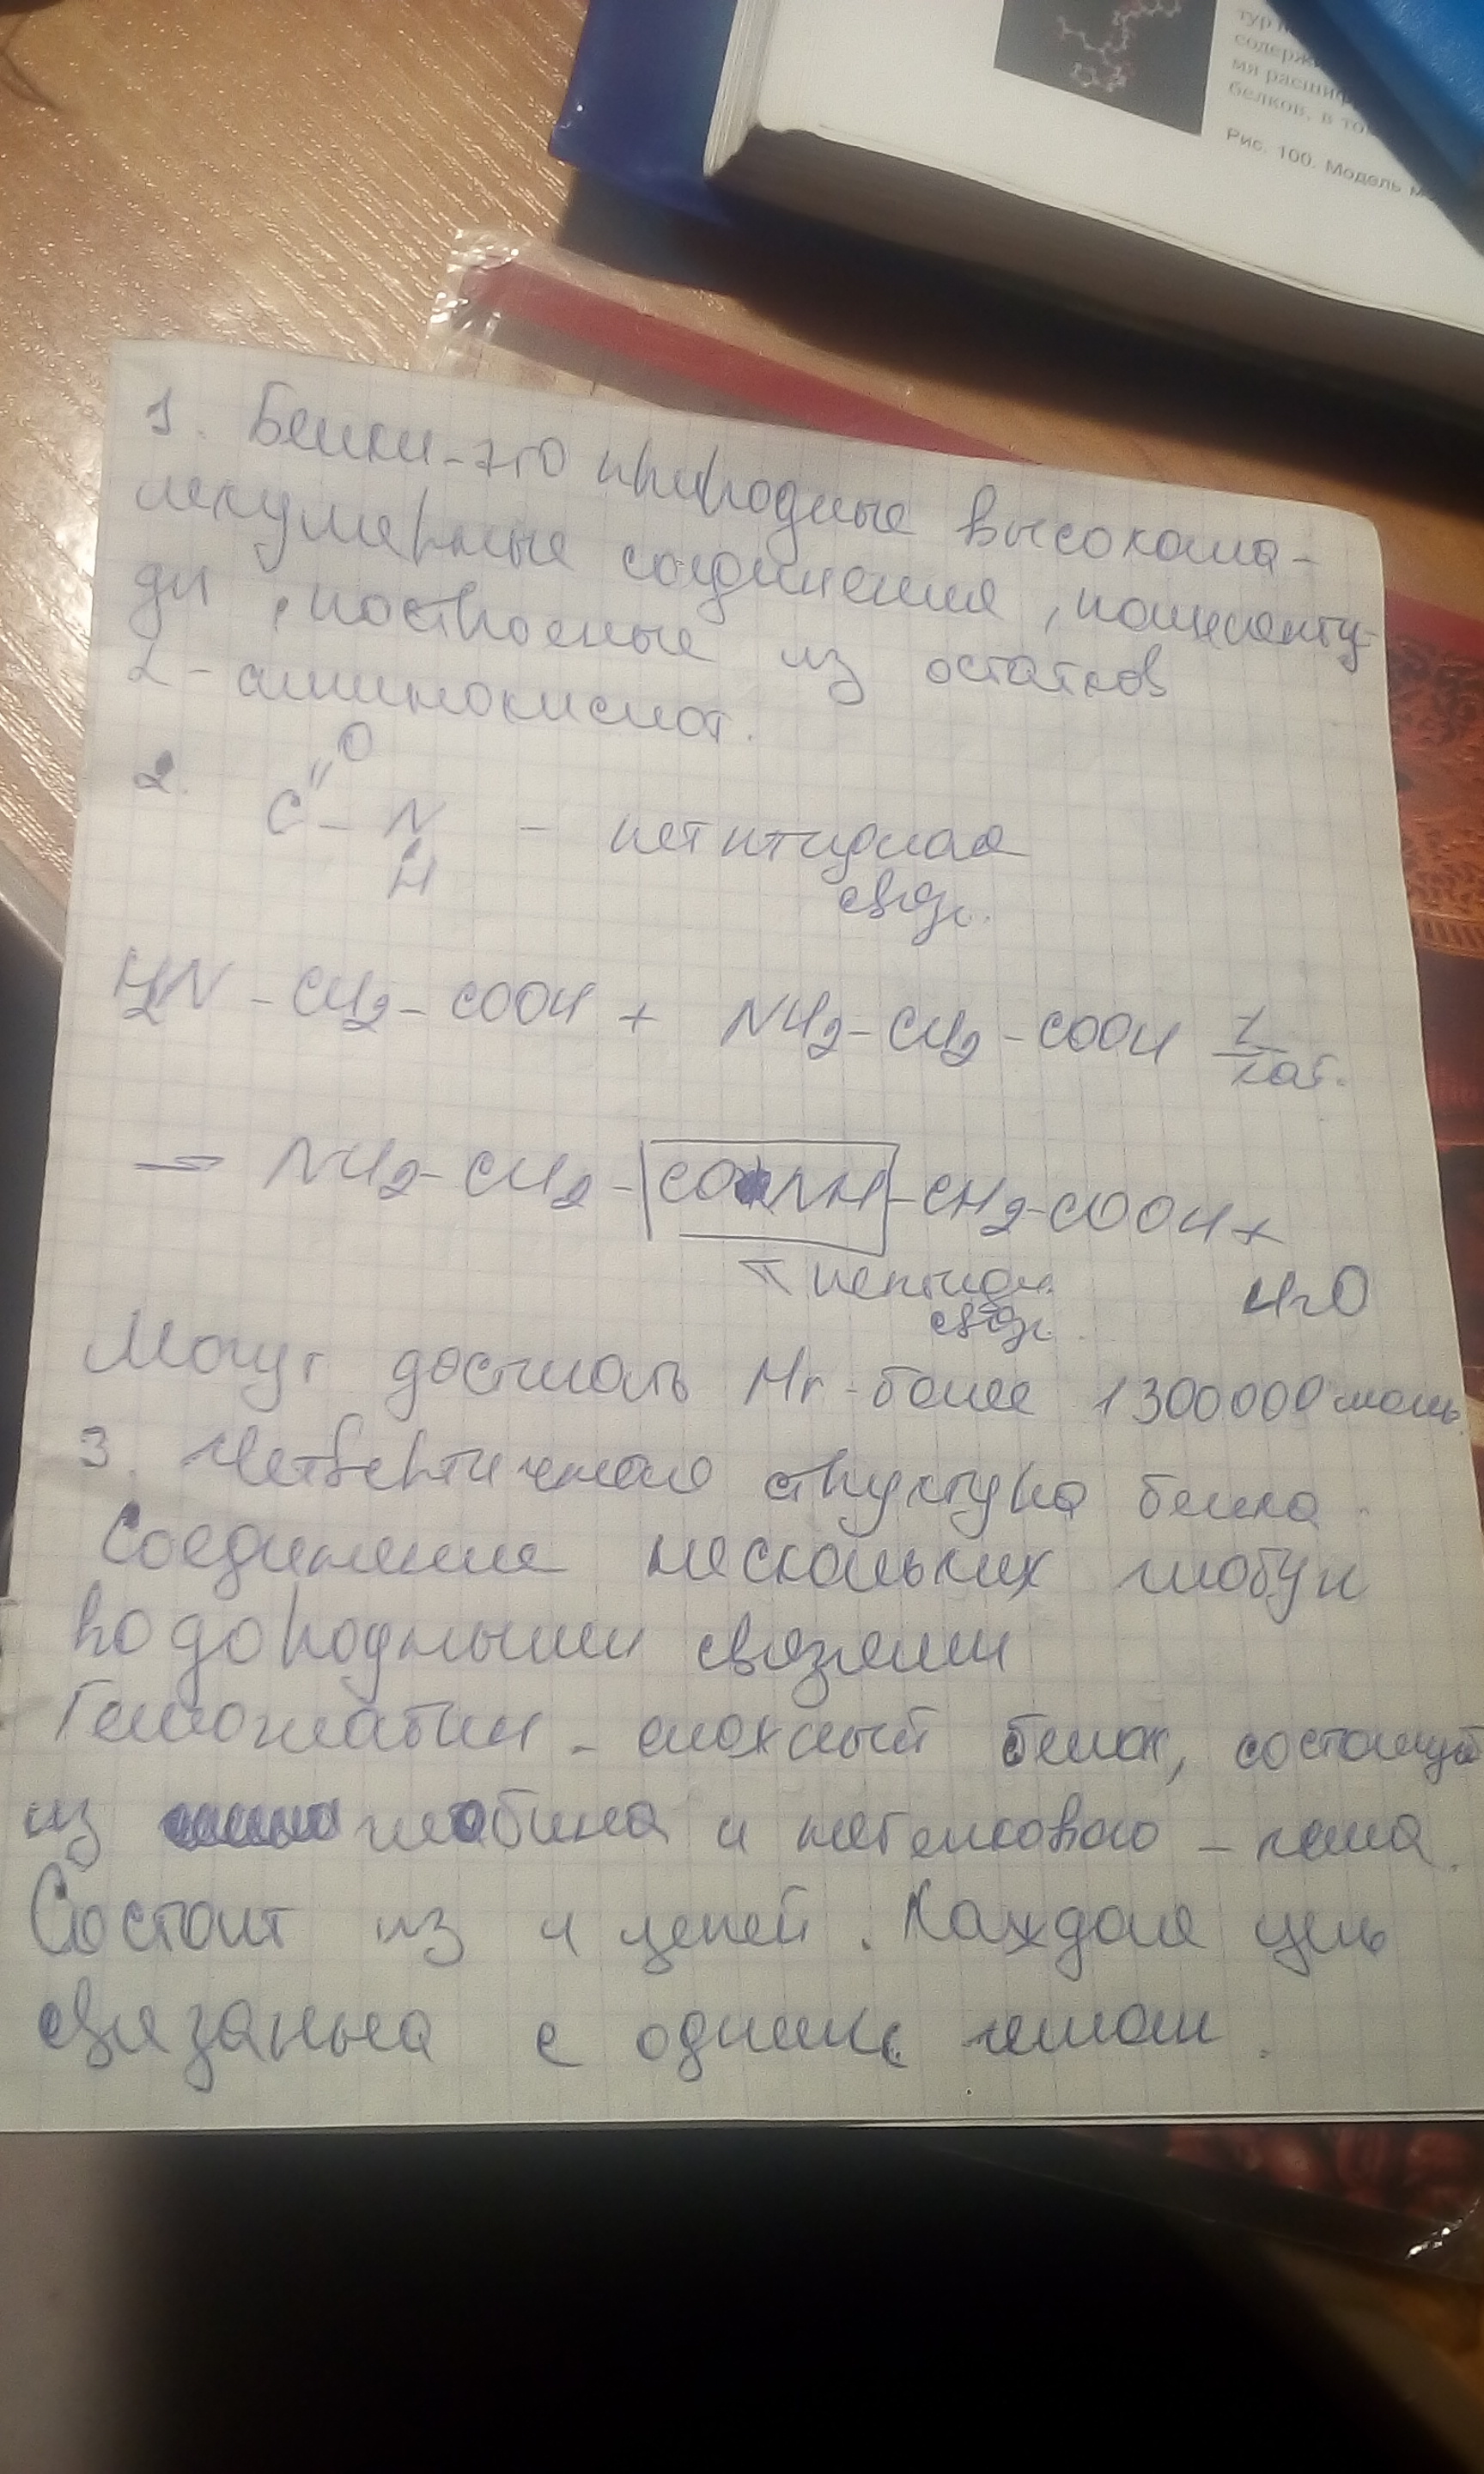 тур
содерж
мя расшиф
белков, в то
Рис. 100. Модель м
1. Белки - это природные высокомо-
лекулярные соединения, полипепти-
ды, построенные из остатков
L - аминокислот.
2. O
C - N - пептидная
H связь.
H2N - CH2 - COOH + NH2 - CH2 - COOH
кат.
→ NH2 - CH2 - CO NH - CH2 - COOH +
пептидн. H2O
связь
Могут достигать Mr - более 1300000
3. Четвертичная структура белка.
Соединение нескольких глобул
водородными связями
Гемоглабин - сложный белок, состоящий
из глобина и небелкового - гема.
Состоит из 4 цепей. Каждая цепь
связанна с одним гемом.